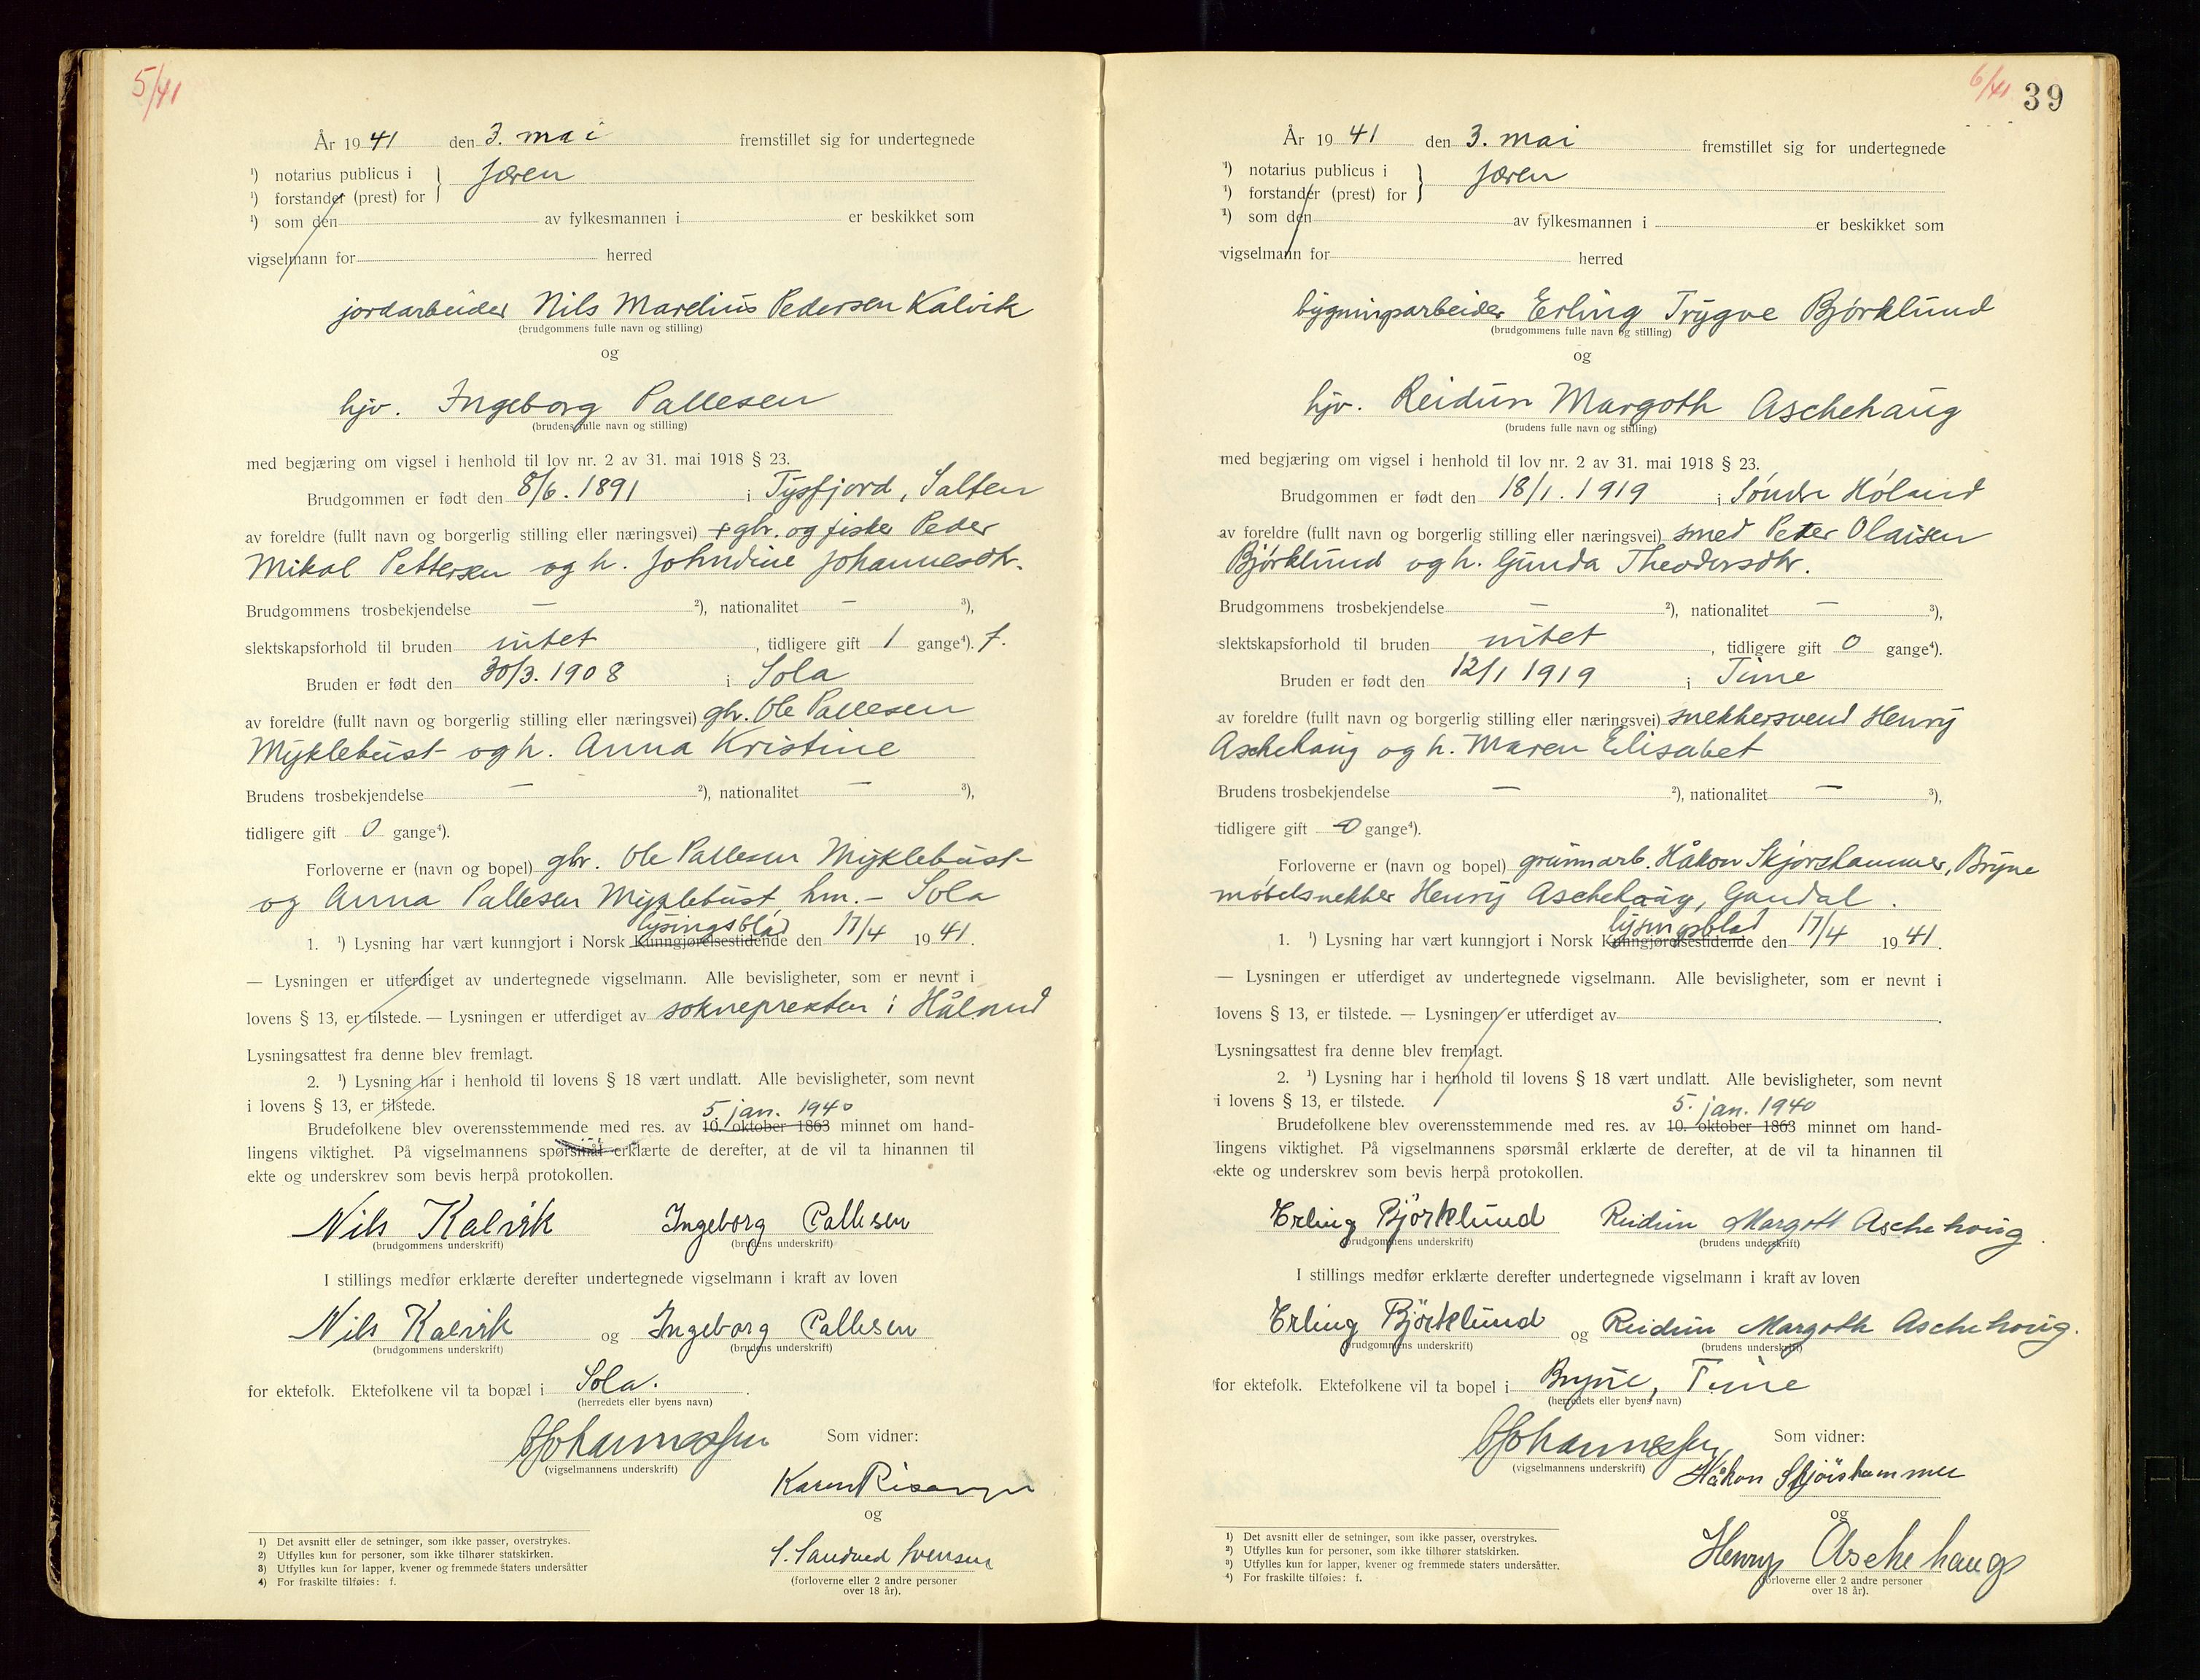 5/41
År 1941 den 3. mai fremstillet sig for undertegnede
¹) notarius publicus i } Jæren
¹) forstander (prest) for
¹) som den av fylkesmannen i er beskikket som
vigselmann for herred
jordarbeider Nils Marelius Pedersen Kalvik
(brudgommens fulle navn og stilling)
og
hjv. Ingeborg Pallesen
(brudens fulle navn og stilling)
med begjæring om vigsel i henhold til lov nr. 2 av 31. mai 1918 § 23.
Brudgommen er født den 8/6. 1891 i Tysfjord, Salten
av foreldre (fullt navn og borgerlig stilling eller næringsvei) + gbr. og fisker Peder
Mikal Pettersen og h. Johndine Johannesdtr.
Brudgommens trosbekjendelse — ²), nationalitet — ³),
slektskapsforhold til bruden intet , tidligere gift 1 gange⁴). f.
Bruden er født den 30/3. 1908 i Sola
av foreldre (fullt navn og borgerlig stilling eller næringsvei) gbr. Ole Pallesen
Myklebust og h. Anna Kristine
Brudens trosbekjendelse — ²), nationalitet — ³),
tidligere gift 0 gange⁴).
Forloverne er (navn og bopel) gbr. Ole Pallesen Myklebust
og Anna Pallesen Myklebust hm. – Sola
lysingsblad
1. ¹) Lysning har vært kunngjort i Norsk Kunngjørelsestidende den 17/4 1941.
— Lysningen er utferdiget av undertegnede vigselmann. Alle bevisligheter, som er nevnt i
lovens § 13, er tilstede. — Lysningen er utferdiget av soknepresten i Håland
Lysningsattest fra denne blev fremlagt.
2. ¹) Lysning har i henhold til lovens § 18 vært undlatt. Alle bevisligheter, som nevnt
i lovens § 13, er tilstede.
5. jan. 1940
Brudefolkene blev overensstemmende med res. av 10. oktober 1863 minnet om hand-
lingens viktighet. På vigselmannens spørsmål erklærte de derefter, at de vil ta hinannen til
ekte og underskrev som bevis herpå protokollen.
Nils Kalvik Ingeborg Pallesen
(brudgommens underskrift) (brudens underskrift)
I stillings medfør erklærte derefter undertegnede vigselmann i kraft av loven
Nils Kalvik og Ingeborg Pallesen
(brudgommens underskrift) (brudens underskrift)
for ektefolk. Ektefolkene vil ta bopæl i Sola.
(herredets eller byens navn)
Johannessen Som vidner:
(vigselmannens underskrift)
Karen
og
S. Sandved Svensen
(forloverne eller 2 andre personer
over 18 år).
1) Det avsnitt eller de setninger, som ikke passer, overstrykes.
2) Utfylles kun for personer, som ikke tilhører statskirken.
3) Utfylles kun for lapper, kvener og fremmede staters undersåtter
4) For fraskilte tilføies: f.
6/41 39
År 1941 den 3. mai fremstillet sig for undertegnede
¹) notarius publicus i } Jæren
¹) forstander (prest) for
¹) som den av fylkesmannen i er beskikket som
vigselmann for herred
bygningsarbeider Erling Trygve Bjørklund
(brudgommens fulle navn og stilling)
og
hjv. Reidun Margoth Aschehaug
(brudens fulle navn og stilling)
med begjæring om vigsel i henhold til lov nr. 2 av 31. mai 1918 § 23.
Brudgommen er født den 18/1. 1919 i Søndre Høland
av foreldre (fullt navn og borgerlig stilling eller næringsvei) smed Peter Olaisen
Bjørklund og h. Gunda Theodorsdtr.
Brudgommens trosbekjendelse — ²), nationalitet — ³),
slektskapsforhold til bruden intet , tidligere gift 0 gange⁴).
Bruden er født den 12/1 1919 i Time
av foreldre (fullt navn og borgerlig stilling eller næringsvei) snekkersvend Henry
Aschehaug og h. Maren Elisabet
Brudens trosbekjendelse — ²), nationalitet — ³),
tidligere gift 0 gange⁴).
Forloverne er (navn og bopel) grunnarb. Håkon Skjorshammer, Bryne
møbelsnekker Henry Aschehaug, Gandal.
lysingsblad
1. ¹) Lysning har vært kunngjort i Norsk Kunngjørelsestidende den 17/4 1941.
— Lysningen er utferdiget av undertegnede vigselmann. Alle bevisligheter, som er nevnt i
lovens § 13, er tilstede. — Lysningen er utferdiget av .
Lysningsattest fra denne blev fremlagt.
2. ¹) Lysning har i henhold til lovens § 18 vært undlatt. Alle bevisligheter, som nevnt
i lovens § 13, er tilstede.
5. jan. 1940
Brudefolkene blev overensstemmende med res. av 10. oktober 1863 minnet om hand-
lingens viktighet. På vigselmannens spørsmål erklærte de derefter, at de vil ta hinannen til
ekte og underskrev som bevis herpå protokollen.
Erling Björklund Reidun Margoth Aschehoug
(brudgommens underskrift) (brudens underskrift)
I stillings medfør erklærte derefter undertegnede vigselmann i kraft av loven
Erling Björklund og Reidun Margoth Aschehoug.
(brudgommens underskrift) (brudens underskrift)
for ektefolk. Ektefolkene vil ta bopel i Bryne, Time
(herredets eller byens navn)
Johannessen Som vidner:
(vigselmannens underskrift) Håkon Skjörshammer
og
Henry Aschehaug
(forloverne eller 2 andre personer
over 18 år).
1) Det avsnitt eller de setninger, som ikke passer, overstrykes.
2) Utfylles kun for personer, som ikke tilhører statskirken.
3) Utfylles kun for lapper, kvener og fremmede staters undersåtter.
4) For fraskilte tilføies: f.